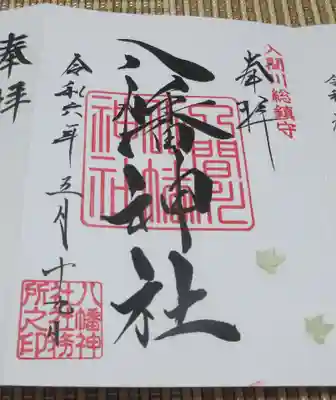 入間川総鎮守
奉拝
八幡神社
入間川
八幡
神社
令和六年五月十九日
八幡神
社社務
所之印
奉拝